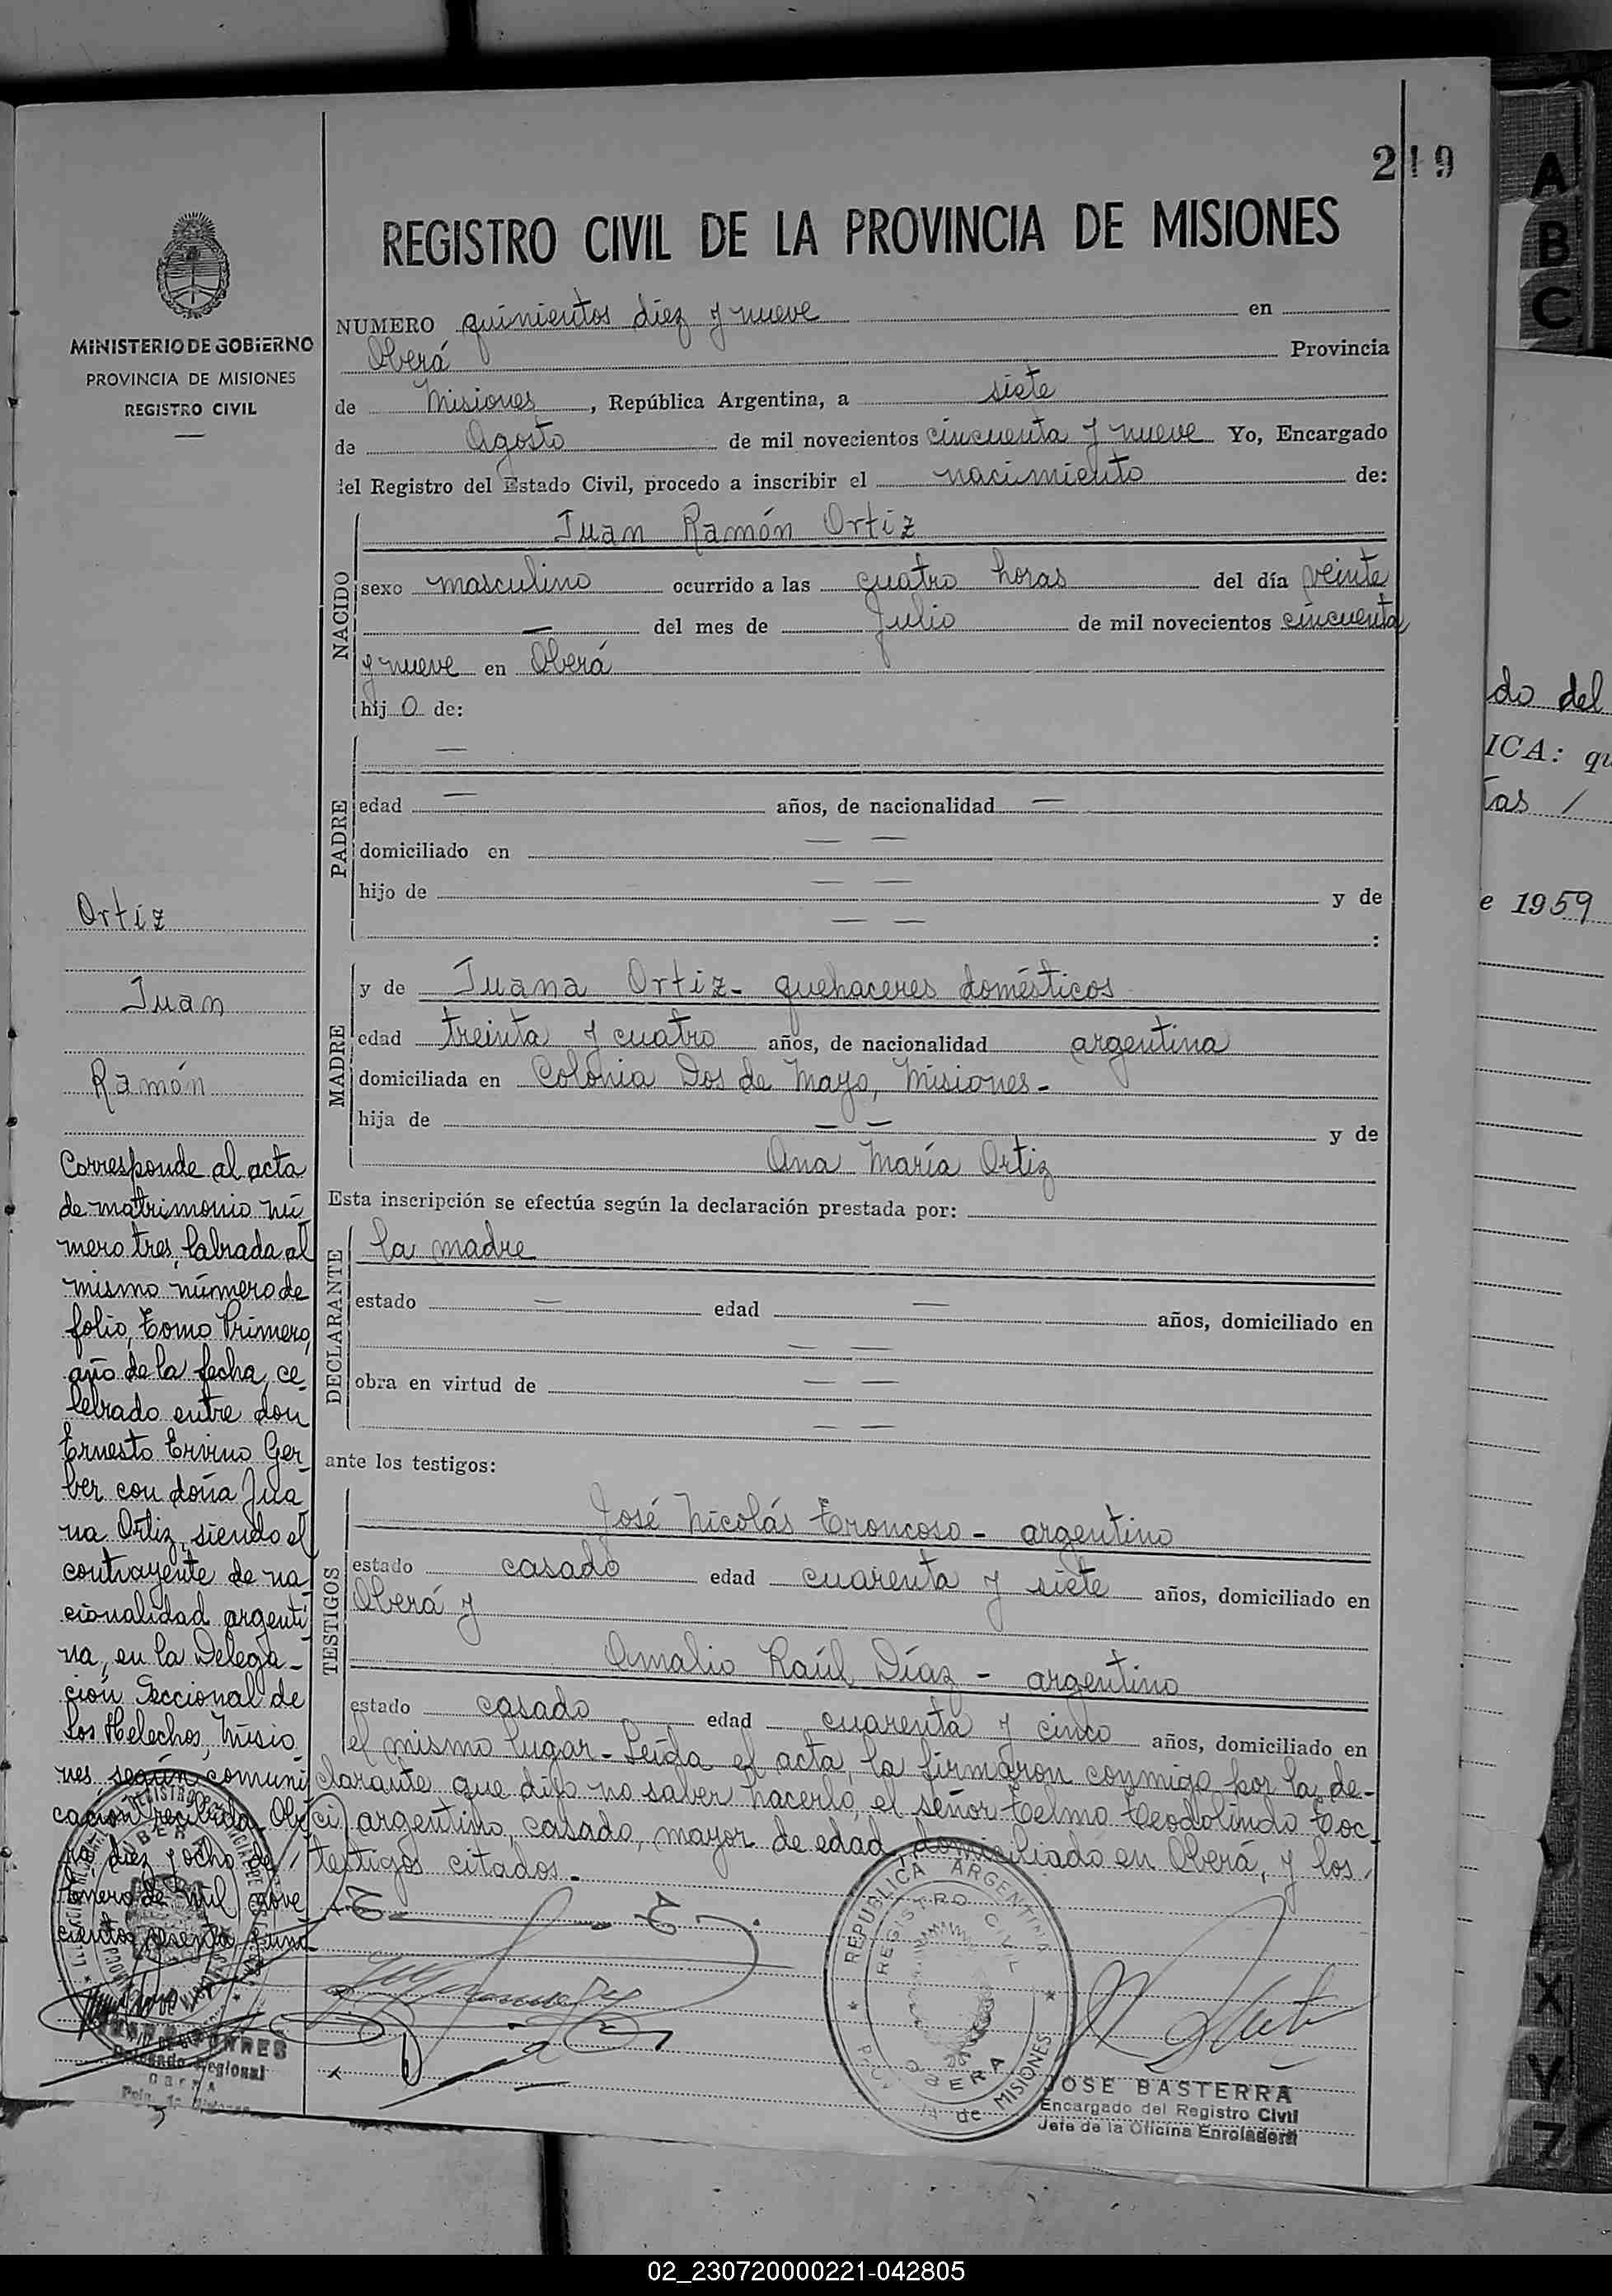 219
REGISTRO CIVIL DE LA PROVINCIA DE MISIONES
MINISTERIO DE GOBIERNO
PROVINCIA DE MISIONES
REGISTRO CIVIL
NUMERO quinientos diez y nueve en
Oberá Provincia
de Misiones, República Argentina, a siete
de Agosto de mil novecientos cincuenta y nueve Yo, Encargado
del Registro del Estado Civil, procedo a inscribir el nacimiento de:
NACIDO
Juan Ramón Ortiz
sexo masculino ocurrido a las cuatro horas del día veinte
— del mes de Julio de mil novecientos cincuenta
y nueve en Oberá
hijo de:
PADRE
—
edad — años, de nacionalidad —
domiciliado en — —
hijo de — — y de
— — :
MADRE
y de Juana Ortiz - quehaceres domésticos
edad treinta y cuatro años, de nacionalidad argentina
domiciliada en Colonia Dos de Mayo, Misiones -
hija de — — y de
Ana María Ortiz
Esta inscripción se efectúa según la declaración prestada por:
DECLARANTE
la madre
estado — edad — años, domiciliado en
— —
obra en virtud de — —
— —
ante los testigos:
TESTIGOS
José Nicolás Troncoso - argentino
estado casado edad cuarenta y siete años, domiciliado en
Oberá y
Amalio Raúl Díaz - argentino
estado casado edad cuarenta y cinco años, domiciliado en
el mismo lugar - Leída el acta, la firmaron conmigo por la de-
clarante que dijo no saber hacerlo, el señor Telmo Teodolindo Toc-
ci, argentino, casado, mayor de edad, domiciliado en Oberá, y los
testigos citados. -
Ortiz
Juan
Ramón
Corresponde al acta
de matrimonio nú-
mero tres, labrada al
mismo número de
folio, Tomo Primero,
año de la fecha, ce-
lebrado entre don
Ernesto Ervino Ger-
ber con doña Jua-
na Ortiz, siendo el
contrayente de na-
cionalidad argenti-
na, en la Delega-
ción Seccional de
Los Helechos, Misio-
nes según comuni-
cación recibida. Obe-
rá, diez y ocho de
Enero de mil nove-
cientos sesenta y uno
Delegado Regional
REPUBLICA ARGENTINA
REGISTRO CIVIL
OBERA
de MISIONES
JOSE BASTERRA
Encargado del Registro Civil
Jefe de la Oficina Enroladora
A
B
C
X
Y
Z
do del
ICA: qu
tas /
e 1959
02_230720000221-042805